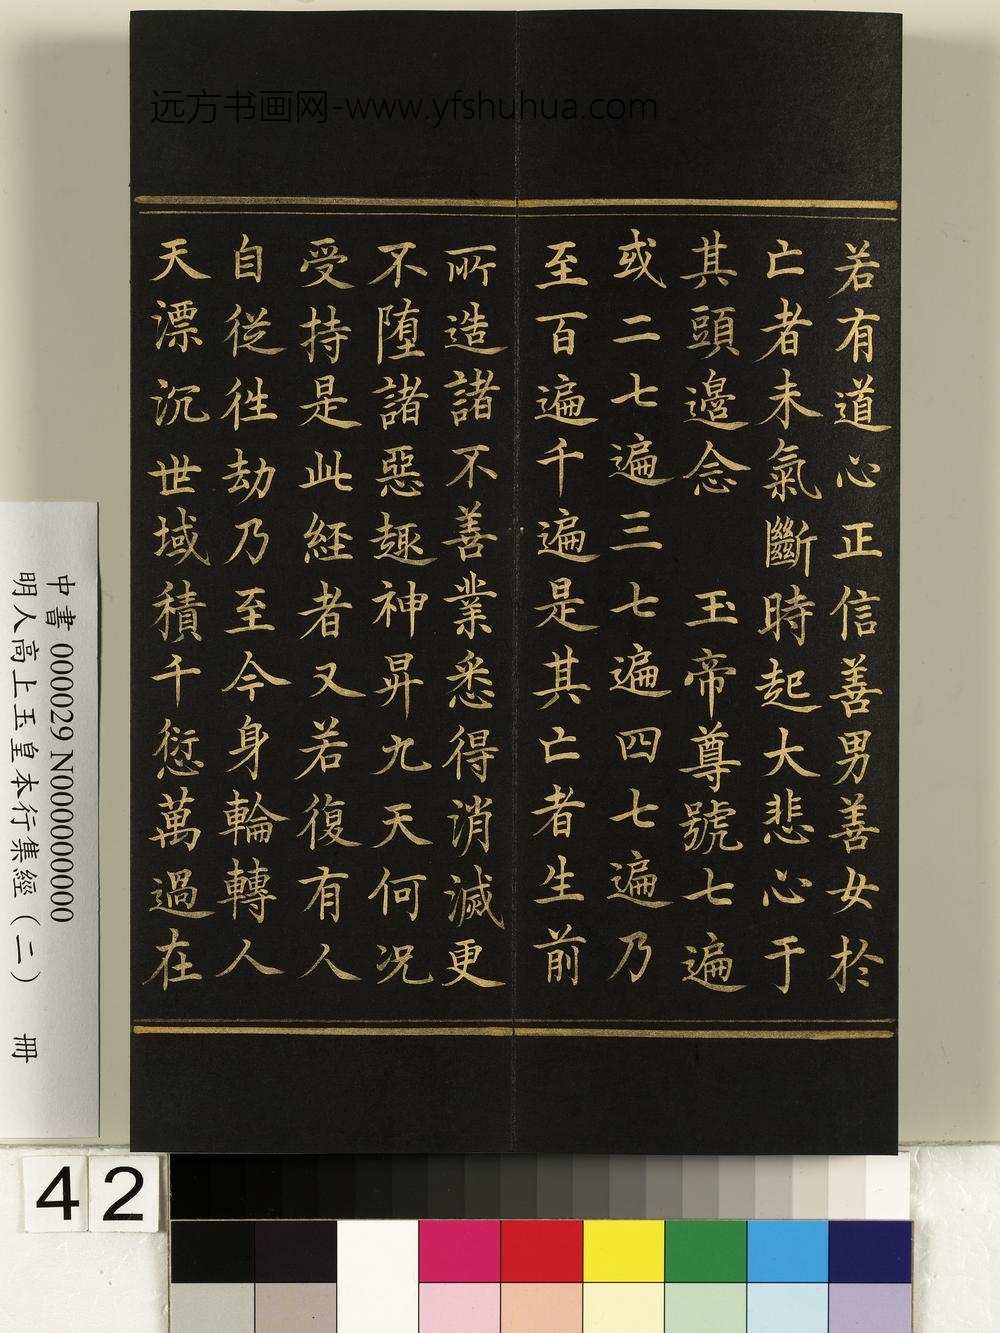 远方书画网-www.yfshuhua.com
若有道心正信善男善女於
亡者未氣斷時起大悲心于
其頭邊念　玉帝尊號七遍
或二七遍三七遍四七遍乃
至百遍千遍是其亡者生前
所造諸不善業悉得消滅更
不墮諸惡趣神昇九天何况
受持是此経者又若復有人
自從徃劫乃至今身輪轉人
天漂沉世域積千愆萬過在
中書 000029 N000000000
明人高上玉皇本行集經（二）　冊
42